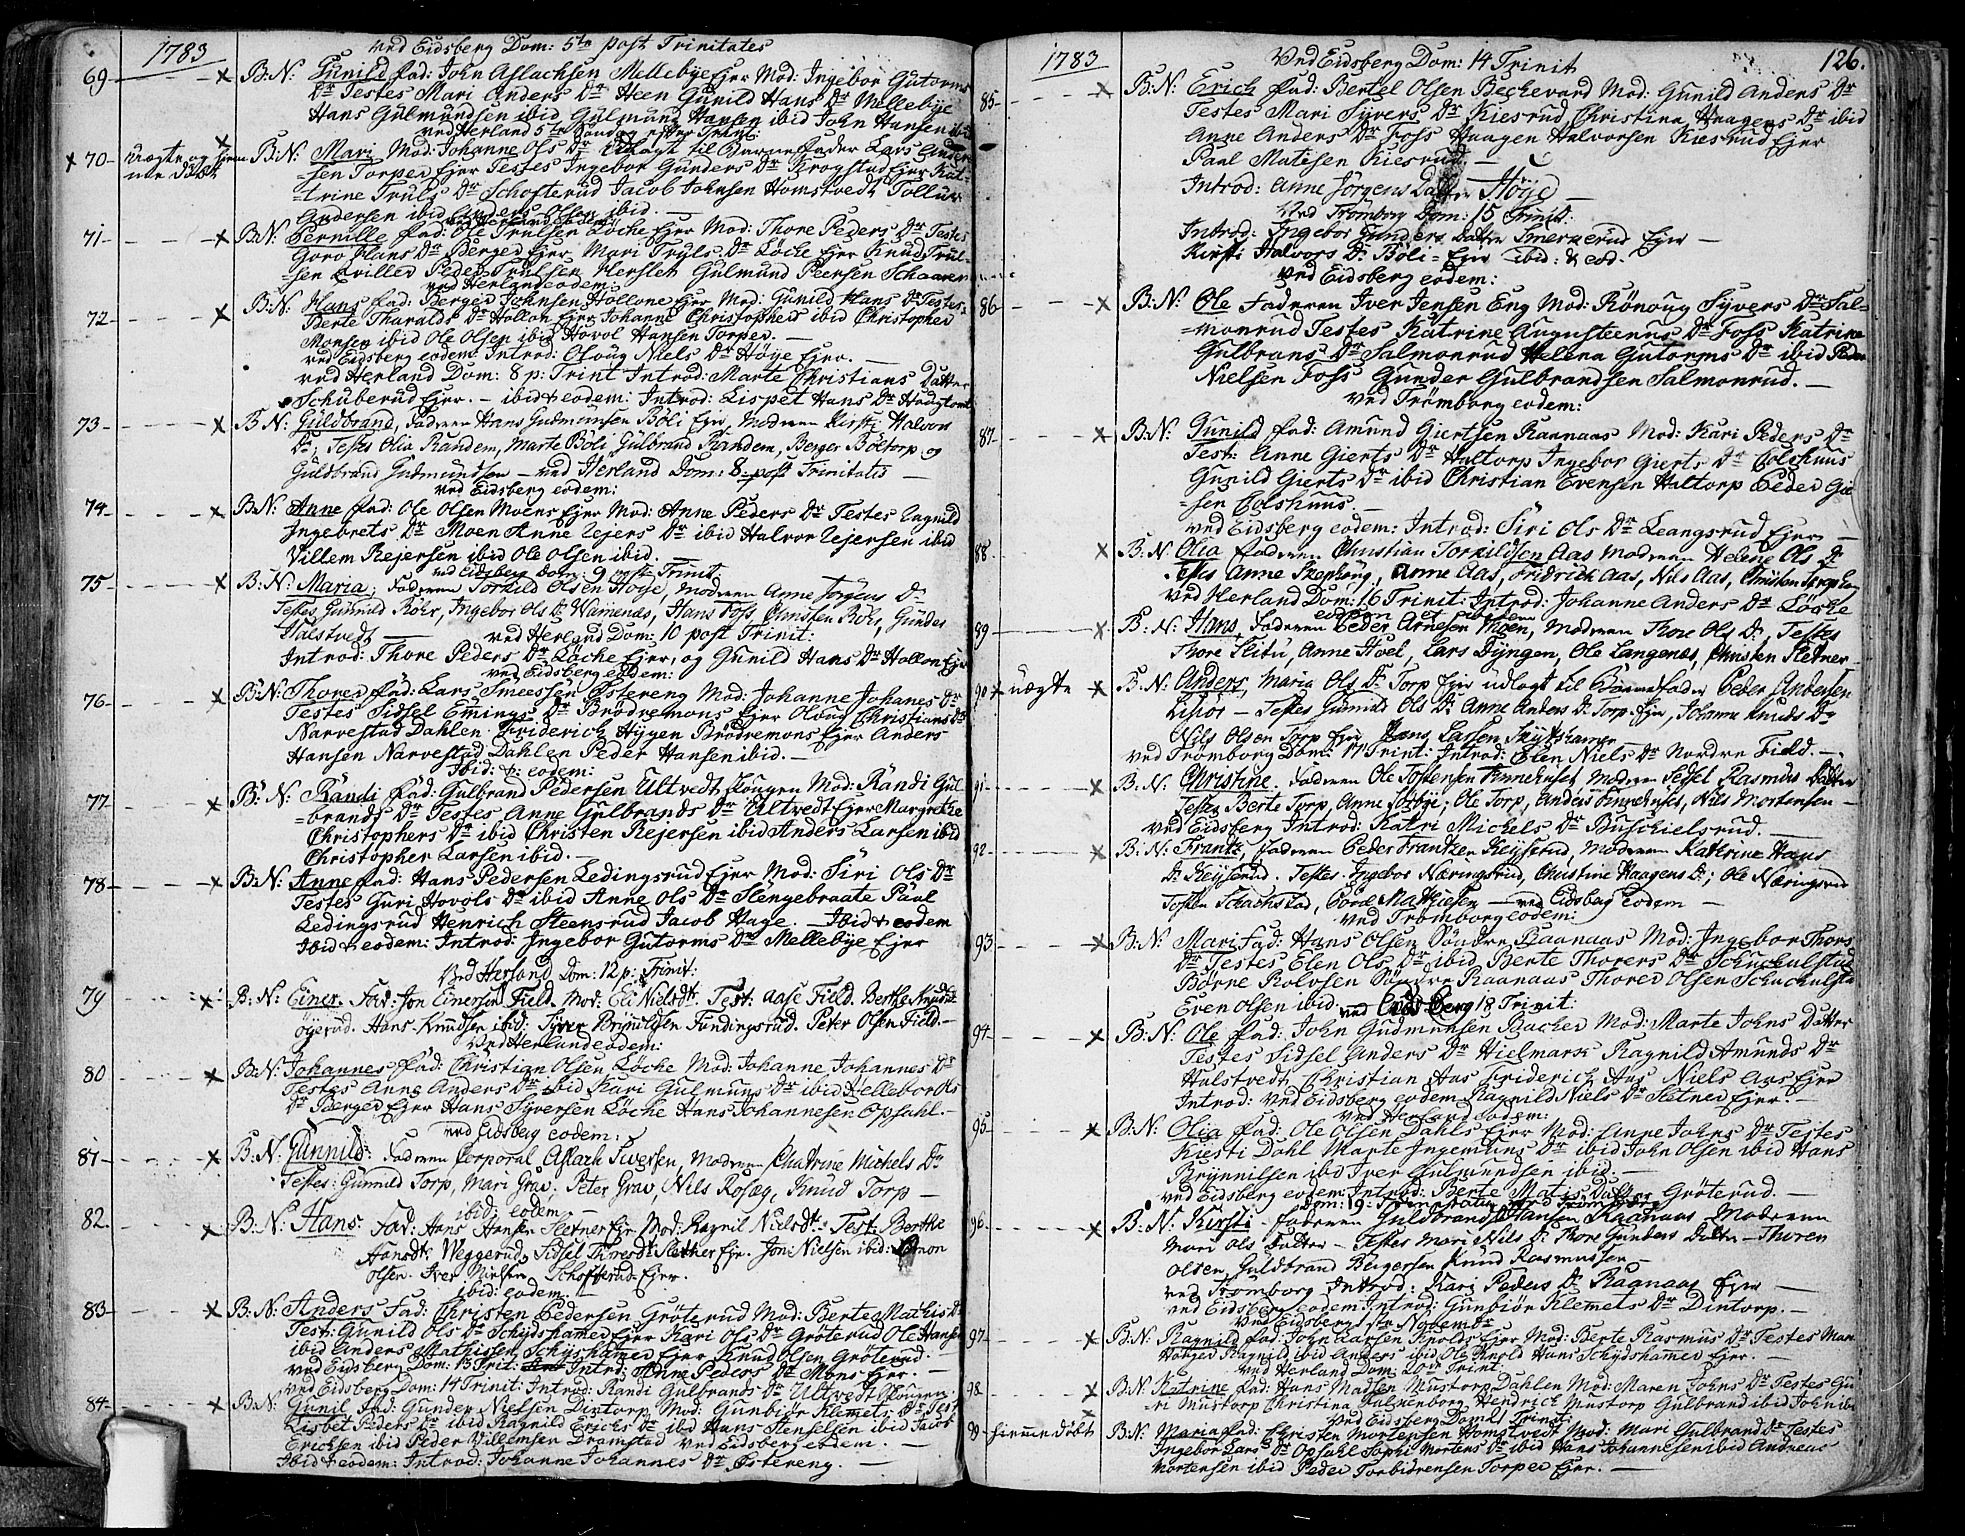 1783
ved Eidsberg Dom: 5te post Trinitates
69 B:N: Gunild fad: John Aslachsen Mellebye Ejer Mod: Ingebor Gutorms
Dr Testes Mari Anders Dr Heen Gunild Hans Dr Mellebye
Hans Gulmundsen ibid Gulmund Hansen ibid John Hansen ibid
ved Herland 5te Sönd: efter Trint:
70 uægte og hjemme döbt B:N: Mari Mod: Johanne Ols Dr Udlagt til Barnefader Lars Ander-
=sen Torper Ejer Testes Ingebor Gunders Dr Krogstad Ejer Kat-
=trine Truls Dr Schofterud Jacob Johnsen Homstvedt Tollur
Andersen ibid Anders Olsen ibid. —
ved Herland eodem:
71 B:N: Pernille fad: Ole Trulsen Löche Ejer Mod: Thore Peders Dr Testes
Goro Hans Dr Berger Ejer Mari Truls Dr Löche Ejer Knud Trul-
=sen Peder Trulsen Herslet Gulmund Peersen Schaaren
ved Herland eodem:
72 B:N: Hans fad: Berger Johnsen Hollone Ejer Mod: Gunild Hans Dr Testes
Berte Tharalds Dr Hollon Ejer Johanne Christophers ibid Christopher
Monsen ibid Ole Olsen ibid Hovol Hansen Torper. —
ved Eidsberg eodem: Introd: Oloug Niels Dr Höye Ejer. —
ved Herland Dom: 8 p: Trint Introd: Marte Christians Datter
Schuberud Ejer. — ibid & eodem: Introd: Lispet Hans Dr
73 B:N: Guldbrand, Faderen Hans Gudmunsen Böli Ejer, Moderen Kirsti Halvors
Dr, Testes Olia Ramdem, Marte Böli, Gulbrand Ramdem, Berger Böltorp og
Guldbrand Gudmundsen — ved Herland Dom: 8. post Trinitatis —
ved Eidsberg eodem:
74 B:N: Anne fad: Ole Olsen Moens Ejer Mod: Anne Peders Dr Testes Ragnild
Ingebrets Dr Moen Anne Rejers Dr ibid Halvor Rejersen ibid
Villem Rejersen ibid Ole Olsen ibid. —
ved Eidsberg Dom: 9 post Trinit
75 B:N: Maria, Faderen Torkild Olsen Höye, Moderen Anne Jörgens Dr
Testes Gunnild Röhr, Ingebor Ols Dr Wamenæs, Hans Foss, Christen Röhr, Gunder
Halstvedt — ved Herland Dom: 10 post Trinit:
Introd: Thore Peders Dr Löche Ejer, og Gunild Hans Dr Hollon Ejer
ved Eidsberg eodem:
76 B:N: Thorer fad: Lars Östereng Mod: Johanne Johanes Dr
Testes Sidsel Emings Dr Brödremons Ejer Oloug Christians Dr
Narvestad Dahlen Friderich Hygen Brödremons Ejer Anders
Hansen Narvestad Dahlen Peder Hansen ibid. —
Ibid: & eodem:
77 B:N: Randi fad: Gulbrand Pedersen Ultvedt skougen Mod: Randi Gul
=brands Dr Testes Anne Gulbrands Dr Ultvedt Ejer Margrethe
Christophers Dr ibid Christen Rejersen ibid Anders Larsen ibid
Christopher Larsen ibid. —
78 B:N: Anne fad: Hans Pedersen Ledingsrud Ejer Mod: Siri Ols Dr
Testes Guri Hovols Dr ibid Anne Ols Dr Slengebraate Paul
Ledingsrud Henrich Steensrud Jacob Hage. — Ibid & eodem
Ibid & eodem: Introd: Ingebor Gutorms Dr Mellebye Ejer
Ved Herland Dom: 12 p: Trinit:
79 B:N: Einer. Fad: Jon Einersen Field. Mod: Eli Nielsdt. Test: Aase Field. Berthe Knudsdt
Hans Knudsen ibid: Syver Fundingsrud. Peter Olsen Field. —
Ved Herland eodem:
80 B:N: Johannes fad: Christian Olsen Löche Mod: Johanne Johannes Dr
Testes Anne Anders Dr ibid Kari Gulmuns Dr ibid Helleborg Ols
Dr Berger Ejer Hans Syversen Löche Hans Johannesen Opsahl. —
ved Eidsberg eodem:
81 B:N: Gunnild: Faderen Corporal Aslach Iversen, Moderen Chatrine Michels Dr
Testes: Gunnild Torp, Mari Grav, Peter Grav, Nils Rosæg, Knud Torp —
ibid: eodem —
82. B:N: Hans. Fad: Hans Hansen Sletner Ejr Mod: Ragnil Nielsdt: Test: Berthe
Hansdt: Weggerud, Sidsel Sletner Ejr. Jon Nielsen ibid: Simon
Olsen. Iver Nielsen Schofterud Ejer.
ibid: eodem. —
83 B:N: Anders Fad: Christen Pedersen Gröterud Mod: Berte Mathis Dr
Test: Gunild Ols Dr Schydshamer Ejer Kari Ols Dr Gröterud Ole Hansen
ibid Anders Mathissen Schyshamer Ejer Knud Olsen Gröterud. —
ved Eidsberg Dom: 13 Trit: Introd: Anne Peders Dr Mons Ejer. —
ved Eidsberg Dom: 14 Trinit: Introd: Randi Gulbrands Dr Ultvedt Skougen.
84 B:N: Gunil Fad: Gunder Nielsen Dintorp Mod: Gunbiör Klemets Dr Test
Lisbet Peders Dr ibid Ragnild Erichs Dr ibid Hans Stenselsen ibid Jacob
Ericksen ibid Peder Villemsen Dramstad ved Eidsberg eodem. —
Ibid & eodem: Introd: Johanne Johannes Dr Östereng. —
1783
126.
Ved Eidsberg Dom: 14 Trinit
85 B:N: Erich fad: Bertel Olsen Beckevard Mod: Gunild Anders Dr
Testes Mari Syvers Dr Kiesrud Christina Haagens Dr ibid
Anne Anders Dr Foss Haagen Halvorsen Kiesrud Ejer
Paal Matisen Kiesrud. —
Introd: Anne Jörgens Datter Höye —
Ved Trömborg Dom: 15 Trinit:
Introd: Ingebor Gunders Datter Smerxerud Ejer —
Kirsti Halvors Dr Böli = Ejer ibid: & eod.
ved Eidsberg eodem:
86 B:N: Ole Faderen Iver Jensen Eng Mod: Rönoug Syvers Dr Sal-
=monrud Testes Katrine Augusteenus Dr Foss Katrine
Gulbrans Dr Salmonrud Helena Gutorms Dr ibid Peder
Nielsen Foss Gunder Gulbrandsen Salmonrud. —
ved Trömborg eodem:
87 B:N: Gunild fad: Amund Giertsen Raanaas Mod: Kari Peders Dr
Test: Anne Gierts Dr Haltorp Ingebor Gierts Dr Colshuus
Gunild Gierts Dr ibid Christian Evensen Haltorp Peder Gie
=sen Colshuus —
ved Eidsberg eodem: Introd: Siri Ols Dr Leangsrud Ejer —
88. B:N: Olia Faderen Christian Torkildsen Aas Moderen Helene Ols Dr
Testes Anne Skephöug, Anne Aas, Fridrich Aas, Nils Aas, Christen
ved Herland Dom: 16 Trinit: Introd: Johanne Anders Dr Löche
eodem et ibidem
89 B:N: Hans, Faderen Peder Arnesen Moen, Moderen Thore Ols Dr, Testes
Thore Slitu, Anne Hoel, Lars Dÿngen, Ole Langenæs, Christen Sletner
90 uægte B:N: Anders, Maria Ols Dr Torp Ejer udlagt til Barnefader Peder Andersen
— Testes Gunnild Ols Dr Anne Anders Dr Torp Ejer, Johanne Knuds Dr
Nils Olsen Torp Ejer Hans Larsen Skydshamer
ved Trömborg Dom: 17 Trint: Introd: Elen Niels Dr Nordre Field. —
91 B:N: Christine, Faderen Ole Tostensen Finnehuset Moderen Sidsel Rasmus Datter
Testes Berte Torp, Anne Söbye, Ole Torp, Anders Finnehuset, Nils Mortensen —
ved Eidsberg Introd: Katri Michels Dr Buschielsrud. —
92 B:N: Frantz, Faderen Peder Frantzen Keyserud, Moderen Kathrine Hans
Dr Keyserud. Testes Ingebor Næringsrud, Christine Haagens Dr; Ole Næringsrud
Tosten Schachstad, Povel Mathiesen — ved Eidsberg eodem —
ved Trömborg eodem:
93 B:N: Mari Fad: Hans Olsen Söndre Raanaas Mod: Ingebor Thors
Dr Testes Elen Ols Dr ibid Berte Thorers Dr Schuckulstad
Börne Rolvsen Söndre Raanaas Thorer Olsen Schuchulsta
Even Olsen ibid: ved Eidsberg 18 Trinit:
94 B:N: Ole fad: John Gudmunsen Backer Mod: Marte Johns Datter
Testes Sidsel Anders Dr Hielmark Ragnild Amunds Dr
Halstvedt Christian Aas Friderich Aas Niels Aas Ejer
Introd: ved Eidsberg eodem Ragnild Niels Dr Sletner Ejer. —
ved Herland eodem:
95 B:N: Olia fad: Ole Olsen Dahls Ejer Mod: Anne Johns Dr Testes
Kiesti Dahl Marte Ingemuns Dr ibid John Olsen ibid Hans
Brynnilsen ibid Iver Gulmundsen ibid. —
ved Eidsberg eodem: Introd: Berte Mates Datter Gröterud. —
96 B:N: Kirsti — Faderen Guldbrand Hansen Raanaas — Moderen
Mari Ols Datter — Testes Mari Nils Dr Thore Gunders Datter — Thoren
Olsen, Guldbrand Bergersen Knud Rasmussen —
ved Trömborg Introd: Kari Peders Dr Raanaas Ejer —
ved Eidsberg eodem Introd: Gunbiör Klemets Dr Dintorp. —
Ved Eidsberg 1ste Novembr
97 B:N: Ragnild fad: John Larsen Knolds Ejer Mod: Berte Rasmus Dr Testes Mari
Ragnild ibid Anders ibid Ole Knold Hans Schydshamer Ejer. —
ved Herland Dom: 20de Trint
98 B:N: Katrine fad: Hans Madsen Mustorp Dahlen Mod: Maren Johns Dr Testes Gu
ri Mustorp Christina Falkenborg Hendrich Mustorp Gulbrand ibid John ibid
Ved Eidsberg Dom: Trinit:
99 hiemme döbt B:N: Maria fad: Christen Mortensen Homstvedt Mod: Mari Gulbrands Dr Testes
Ingebor Lars Dr Opsahl Sophi Mortens Dr ibid Hans Johannesen ibid Andreas
Mortensen ibid Peder Torbidrensen Torper Ejer. —